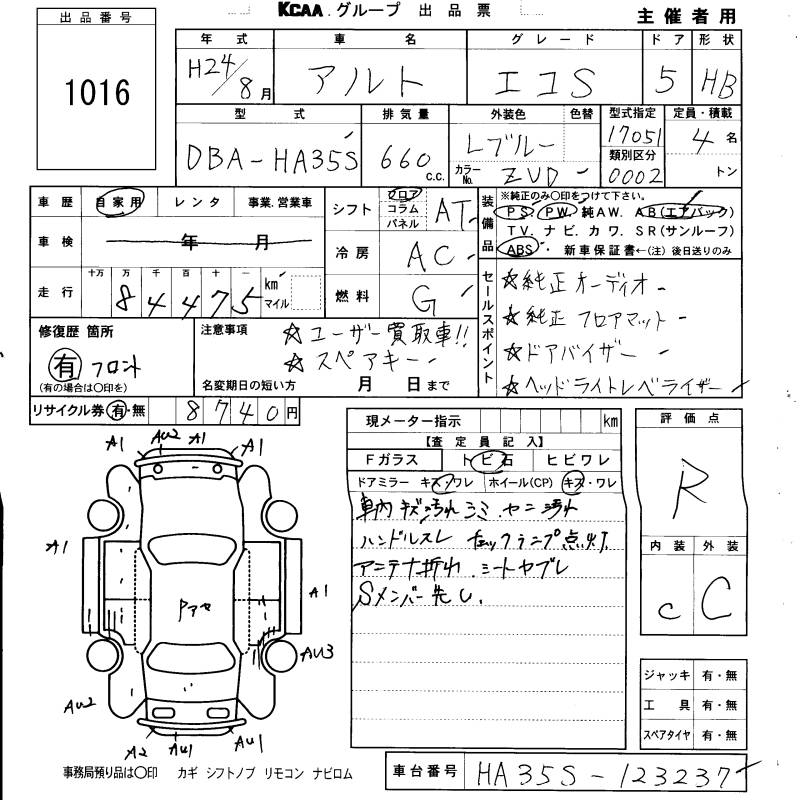 KCAA. グループ 出品票
主催者用
出品番号
1016
年式 車名 グレード ドア 形状
H24/8月 アルト エコS 5 HB
型式 排気量 外装色 色替 型式指定 定員・積載
DBA-HA35S 660 c.c. Lブルー 17051 4名
カラーNo. ZVD 類別区分 0002 トン
車歴 自家用 レンタ 事業.営業車
車検 年 月
走行 十万 万 千 百 十 一
84475 km マイル
シフト フロア コラム パネル AT
冷房 AC
燃料 G
装備品 ※純正のみ〇印をつけて下さい。
PS PW. 純AW. AB(エアバッグ)
TV. ナビ. カワ. SR(サンルーフ)
ABS・ 新車保証書←(注) 後日送りのみ
セールスポイント
☆純正オーディオ
☆純正フロアマット
☆ドアバイザー
☆ヘッドライトレベライザー
修復歴 箇所
有 フロント
(有の場合は〇印を)
注意事項 ☆ユーザー買取車!!
☆スペアキー
名変期日の短い方 月 日まで
リサイクル券 有・無 8740円
現メーター指示 km
【査定員記入】
Fガラス トビ石 ヒビワレ
ドアミラー キズ・ワレ ホイール(CP) キズ・ワレ
車内キズ汚れ シミ ヤニ汚れ
ハンドルスレ チェックランプ点灯
アンテナ折れ. シートヤブレ
Sメンバー先し.
評価点
R
内装 外装
C C
A1 AU2 A1 A1
A1
A1
Pアセ
AU3
AU2
A2 AU1 AU1
ジャッキ 有・無
工具 有・無
スペアタイヤ 有・無
事務局預り品は〇印 カギ シフトノブ リモコン ナビロム
車台番号 HA35S-123237